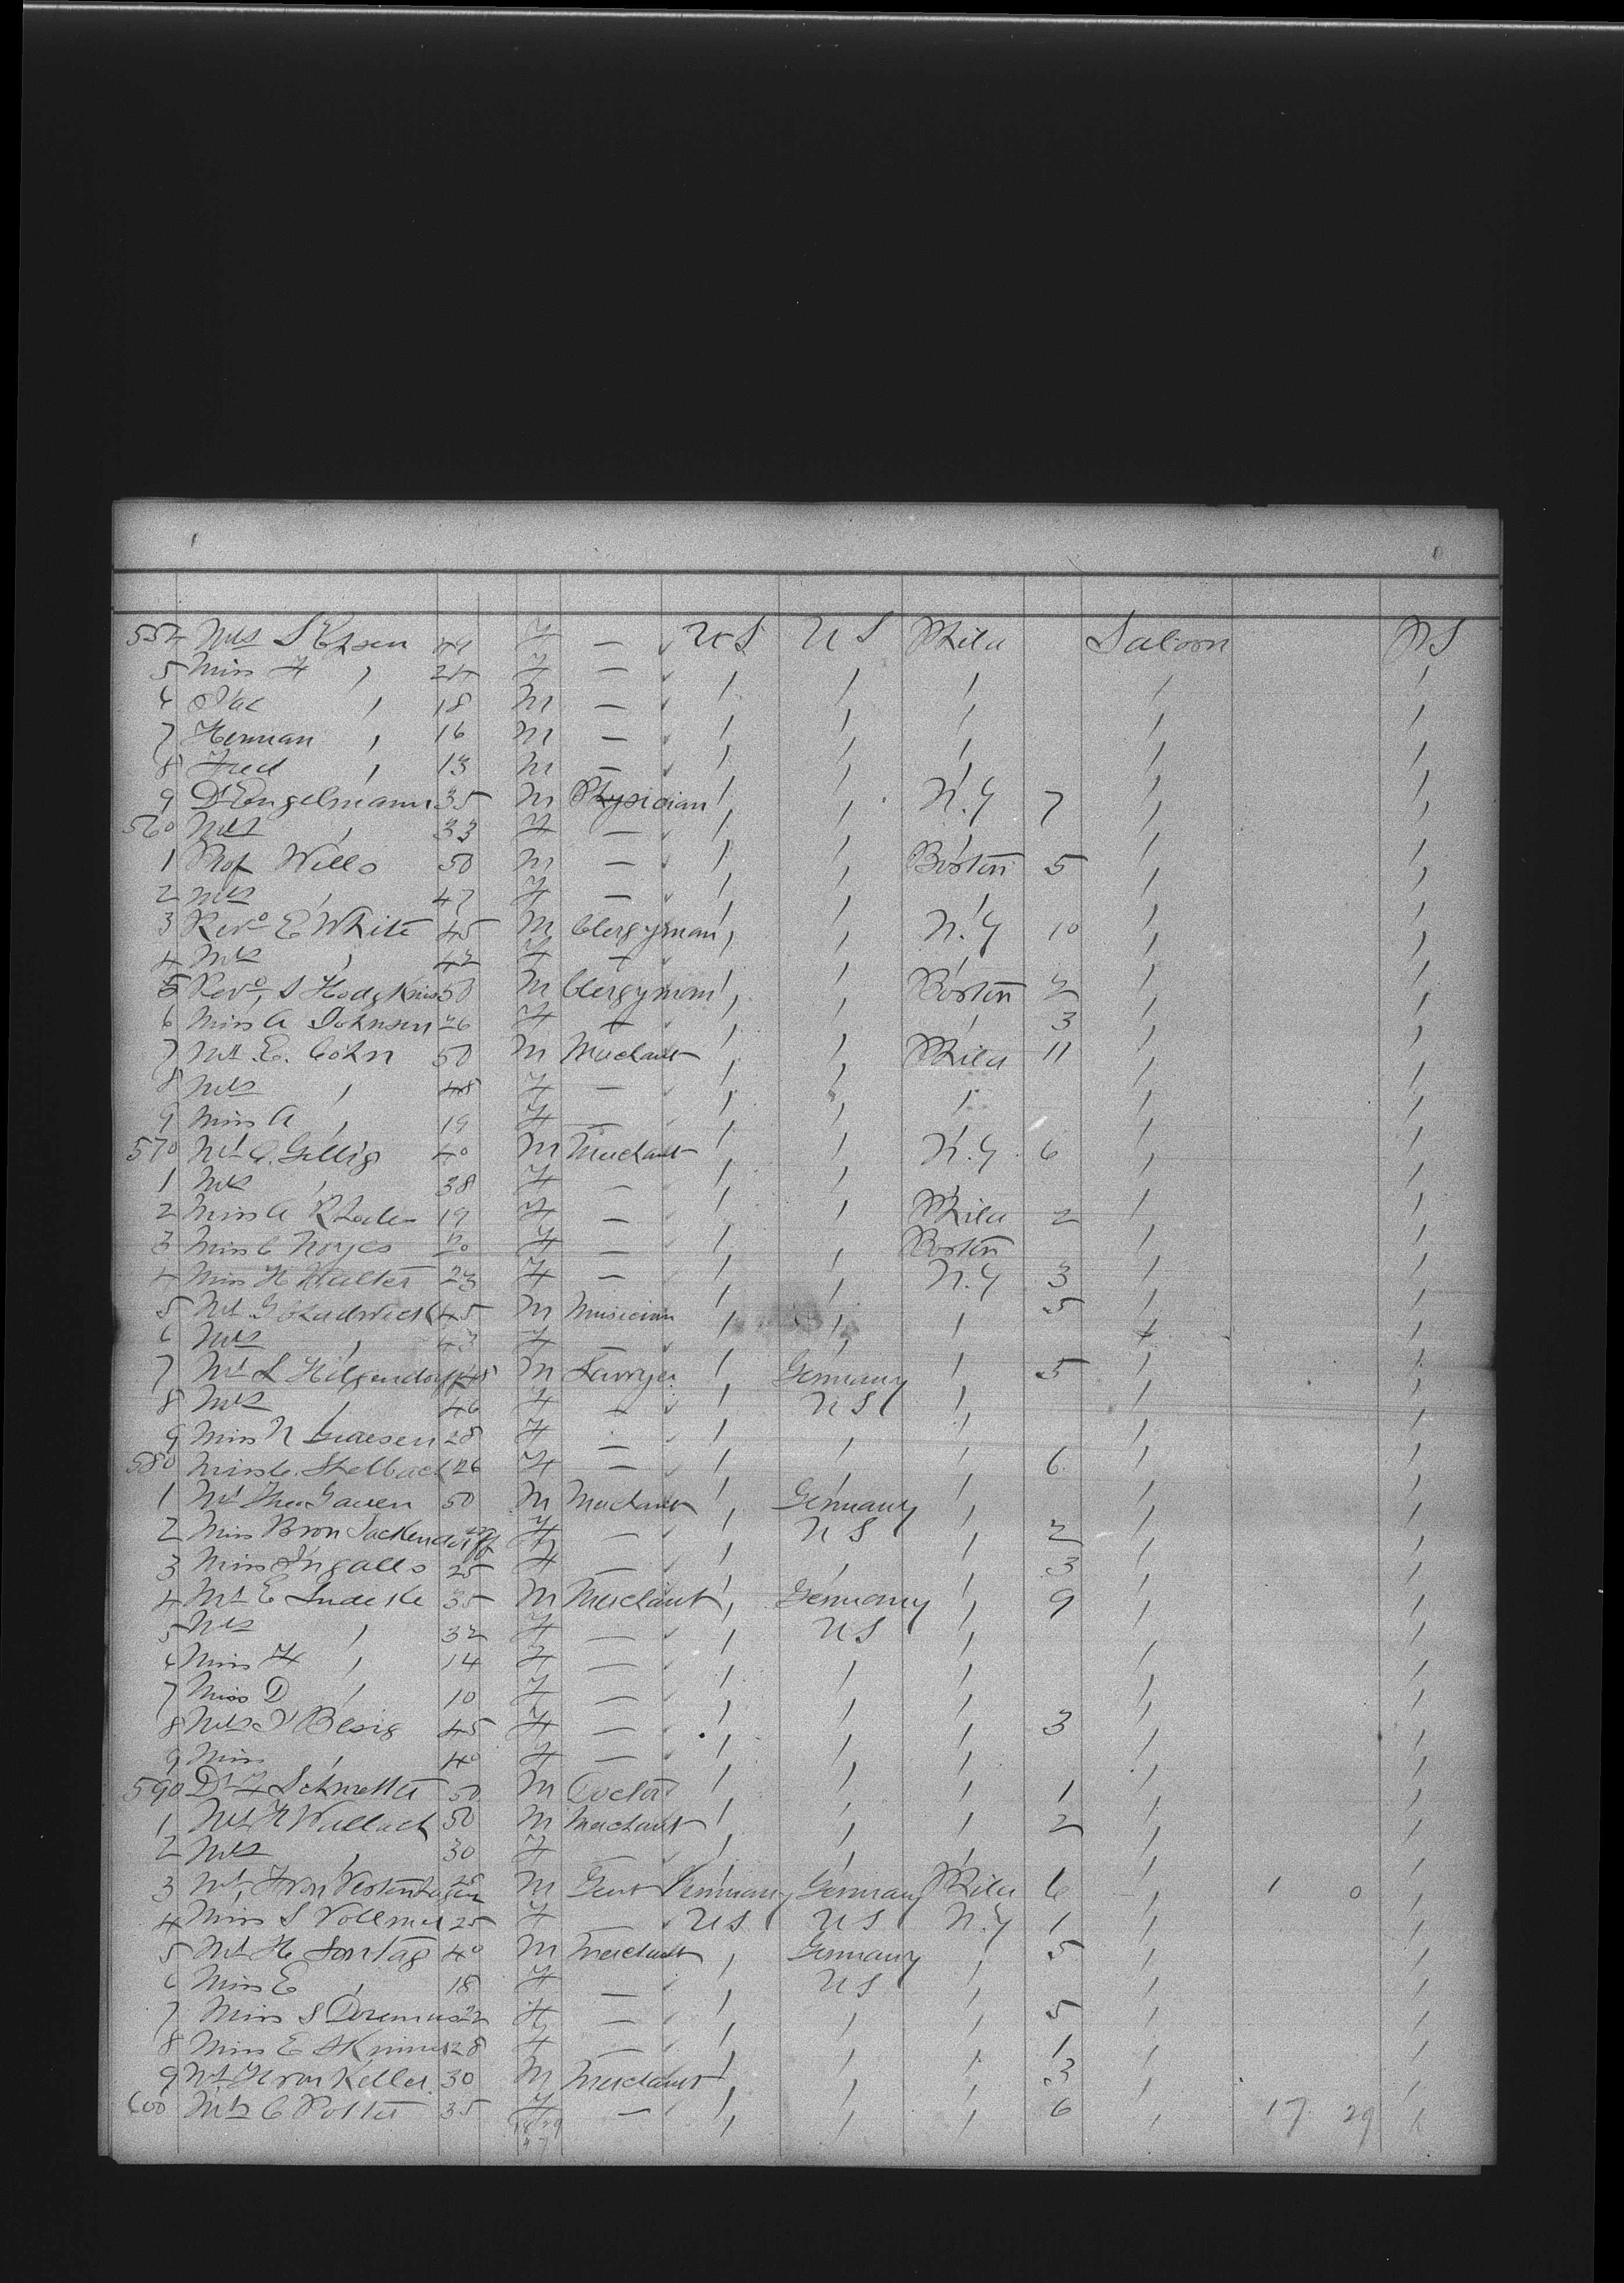 554 Mrs S Klpsen 49 F — US US Phila Saloon PS
5 Miss F , 24 F — , , , , ,
6 , 18 M — , , , , ,
7 Herman , 16 M — , , , , ,
8 Fred , 13 M — , , , , ,
9 Dr Engelmann 35 M Physician , , N.Y 7 , ,
560 Mrs , 33 F — , , , , ,
1 Prof Wells 50 M — , , Boston 5 , ,
2 Mrs , 47 F — , , , , ,
3 Revd E White 45 M Clergyman , , N.Y 10 , ,
4 Mrs , 42 F — , , , , ,
5 Revd S Hodgkins 50 M Clergyman , , Boston 2 , ,
6 Miss A Johnson 26 F — , , , 3 , ,
7 Mr E. Cohn 50 M Merchant , , Phila 11 , ,
8 Mrs , 48 F — , , , , ,
9 Miss A , 19 F — , , , , ,
570 Mr C. Gillig 40 M Merchant , , N.Y. 6 , ,
1 Mrs , 38 F — , , , , ,
2 Miss A Rhodes 19 F — , , Phila 2 , ,
3 Miss C Noyes 20 F — , , Boston , ,
4 Miss H Walter 23 F — , , N.Y 3 , ,
5 Mr G Chadwick 45 M Musician , , , 5 , ,
6 Mrs , 43 F — , , , , ,
7 Mr L Hilgendorff 48 M Lawyer , Germany , 5 , ,
8 Mrs , 46 F — , US , , ,
9 Miss N 28 F — , , , , ,
580 Miss C. Shelback 26 F — , , , 6 , ,
1 Mr Theo Gaven 50 M Merchant , Germany , , ,
2 Miss F — , US , 2 , ,
3 Miss Ingalls 25 F — , , , 3 , ,
4 Mr E Luderke 35 M Merchant , Germany , 9 , ,
5 Mrs , 32 F — , US , , ,
6 Miss F , 14 F — , , , , ,
7 Miss D , 10 F — , , , , ,
8 Mrs Besig 45 F — , , , 3 , ,
9 Miss , 40 F — , , , , ,
590 Dr F Schmetter 50 M Doctor , , , 1 , ,
1 Mr H Wallach 50 M Merchant , , , 2 , ,
2 Mrs , 30 F — , , , , ,
3 Mr F von Vestenhagen 28 M Gent Germany Germany Phila 6 , 1 0 ,
4 Miss S Vollmer 25 F — US US N.Y 1 , ,
5 Mr H Sontag 40 M Merchant , Germany , 5 , ,
6 Miss E , 18 F — , US , , ,
7 Miss S Doremus 22 F — , , , 5 , ,
8 Miss E Skinner 28 F — , , , 1 , ,
9 Mr H von Keller 30 M Merchant , , , 3 , ,
600 Mrs C Potter 35 F — , , , 6 , 17 29 ,